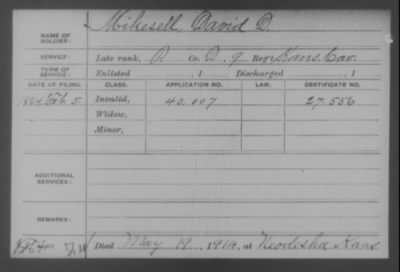 NAME OF SOLDIER: Mikesell, David D.
SERVICE: Late rank, P Co. D, 9 Reg't Kans Cav.
TERM OF SERVICE: Enlisted , 1 Discharged , 1
DATE OF FILING. CLASS. APPLICATION NO. LAW. CERTIFICATE NO.
1864 Feb 5 Invalid, 40.007 27.556
Widow,
Minor,
ADDITIONAL SERVICES:
REMARKS:
Died May 19, 1914, at Neodesha Kans